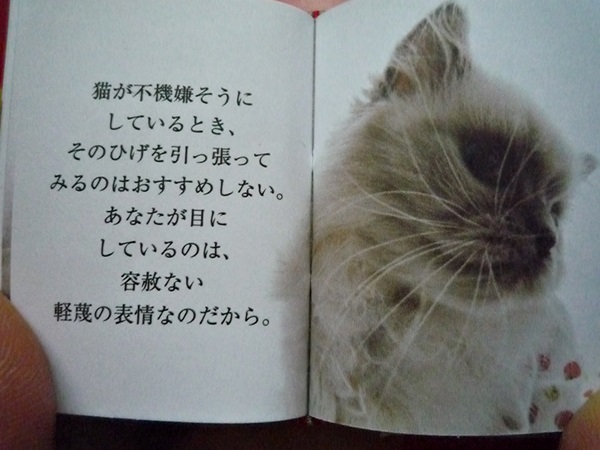 猫が不機嫌そうに
しているとき、
そのひげを引っ張って
みるのはおすすめしない。
あなたが目に
しているのは、
容赦ない
軽蔑の表情なのだから。